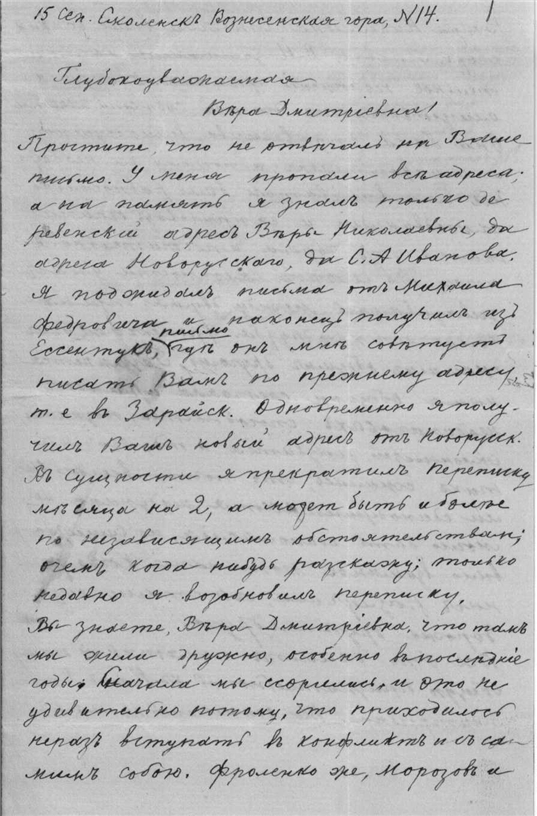 15 Сен. Смоленскъ Вознесенская гора, N14.
Глубокоуважаемая
Вѣра Дмитріевна!
Простите, что не отвѣчалъ на Ваше
письмо. У меня пропали всѣ адреса,
а на память я зналъ только де
ревенскій адресъ Вѣры Николаевны, да
адреса Новорусскаго, да С.А Иванова.
Я поджидалъ письма отъ Михаила
Федровича и наконецъ получилъ изъ
Ессентукъ, письмо гдѣ онъ мнѣ совѣтуетъ
писать Вамъ по прежнему адресу
т. е въ Зарайск. Одновременно я полу-
чилъ Вашъ новый адресъ отъ Новорусск.
Въ сущности я прекратилъ переписку
мѣсяца на 2, а может быть и болѣе
по независящимъ обстоятельствам;
о чемъ когда нибудь разскажу; только
недавно я возобновилъ переписку.
Вы знаете, Вѣра Дмитріевна, что тамъ
мы жили дружно, особенно въ послѣдніе
годы. Сначала мы ссорились, и это не
удивительно потому, что приходилось
неразъ вступать въ конфликтъ и съ са-
мимъ собою. Фроленко же, Морозовъ и